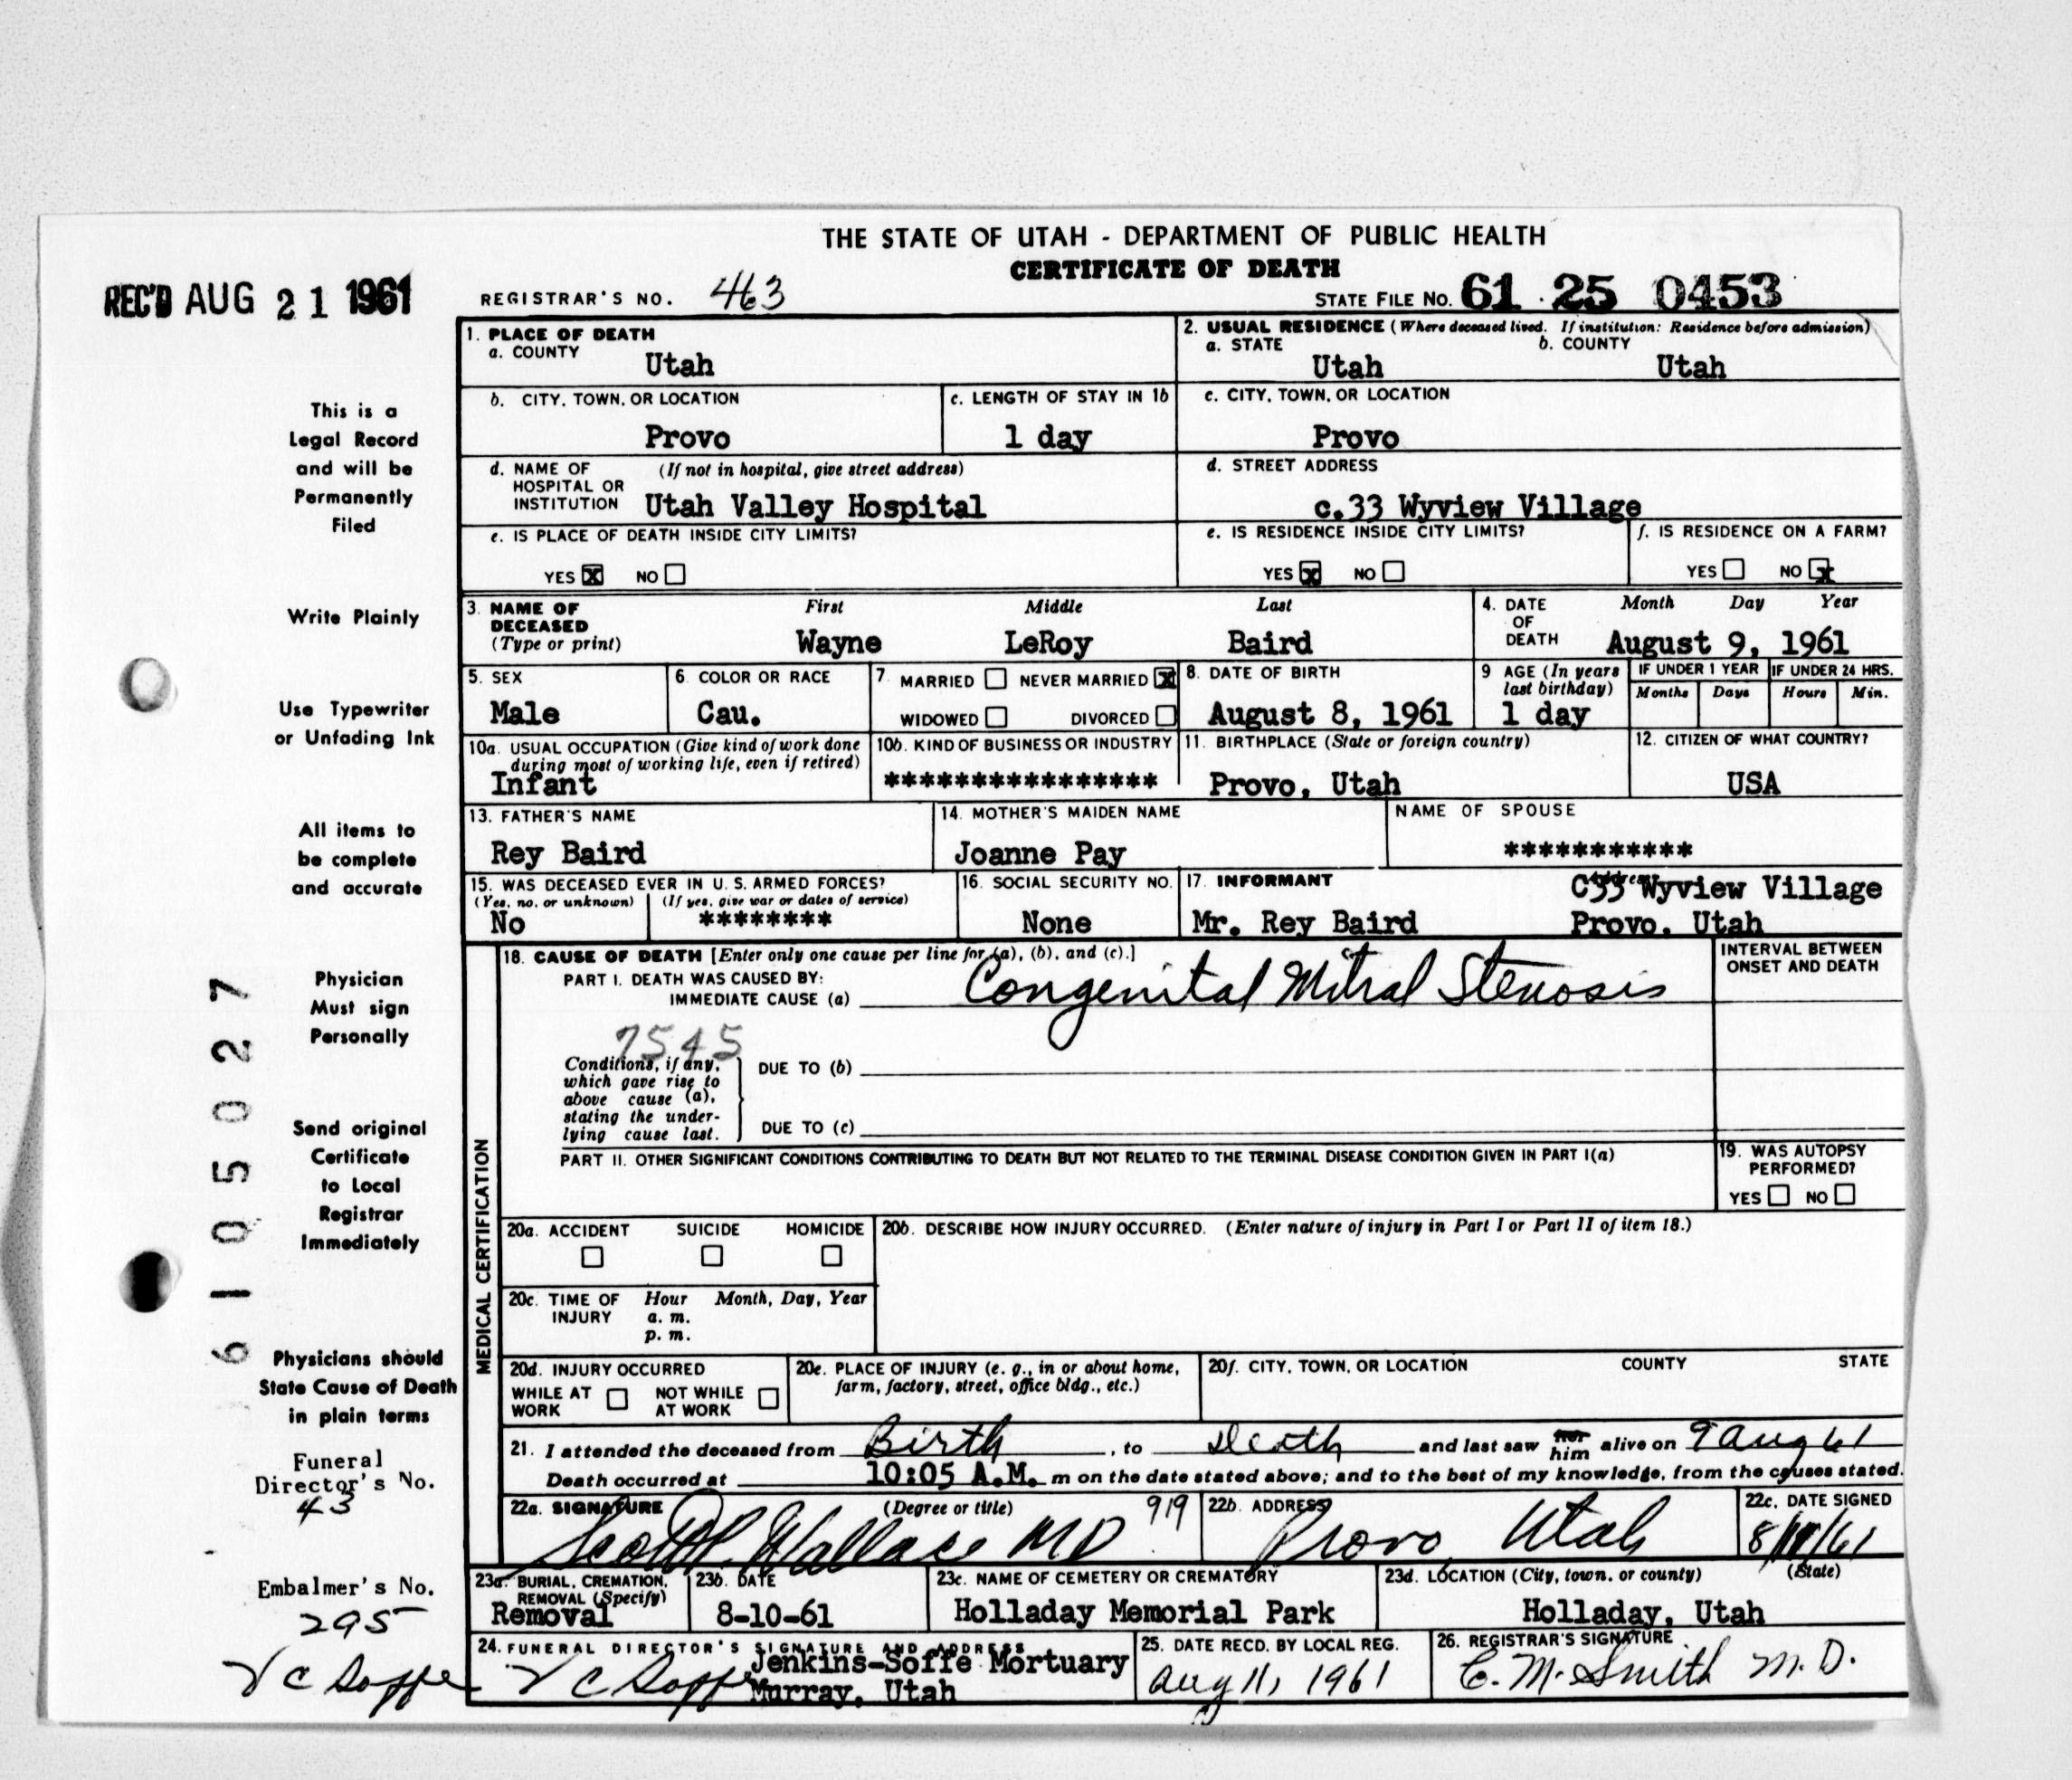 THE STATE OF UTAH - DEPARTMENT OF PUBLIC HEALTH
CERTIFICATE OF DEATH
REC'D AUG 21 1961
REGISTRAR'S NO. 463
STATE FILE NO. 61 25 0453
1. PLACE OF DEATH
a. COUNTY
Utah
2. USUAL RESIDENCE (Where deceased lived. If institution: Residence before admission)
a. STATE b. COUNTY
Utah Utah
b. CITY, TOWN, OR LOCATION
Provo
c. LENGTH OF STAY IN 1b
1 day
c. CITY, TOWN, OR LOCATION
Provo
d. NAME OF (If not in hospital, give street address)
HOSPITAL OR
INSTITUTION Utah Valley Hospital
d. STREET ADDRESS
c.33 Wyview Village
e. IS PLACE OF DEATH INSIDE CITY LIMITS?
YES X NO
e. IS RESIDENCE INSIDE CITY LIMITS?
YES X NO
f. IS RESIDENCE ON A FARM?
YES NO X
3. NAME OF DECEASED
(Type or print)
First Middle Last
Wayne LeRoy Baird
4. DATE OF DEATH
Month Day Year
August 9, 1961
5. SEX
Male
6. COLOR OR RACE
Cau.
7. MARRIED NEVER MARRIED X
WIDOWED DIVORCED
8. DATE OF BIRTH
August 8, 1961
9 AGE (In years
last birthday)
1 day
IF UNDER 1 YEAR IF UNDER 24 HRS.
Months Days Hours Min.
10a. USUAL OCCUPATION (Give kind of work done
during most of working life, even if retired)
Infant
10b. KIND OF BUSINESS OR INDUSTRY
****************
11. BIRTHPLACE (State or foreign country)
Provo, Utah
12. CITIZEN OF WHAT COUNTRY?
USA
13. FATHER'S NAME
Rey Baird
14. MOTHER'S MAIDEN NAME
Joanne Pay
NAME OF SPOUSE
***********
15. WAS DECEASED EVER IN U. S. ARMED FORCES?
(Yes, no, or unknown) (If yes, give war or dates of service)
No ********
16. SOCIAL SECURITY NO.
None
17. INFORMANT Address
Mr. Rey Baird
C33 Wyview Village
Provo, Utah
MEDICAL CERTIFICATION
18. CAUSE OF DEATH [Enter only one cause per line for (a), (b), and (c).]
PART I. DEATH WAS CAUSED BY:
IMMEDIATE CAUSE (a) Congenital Mitral Stenosis
INTERVAL BETWEEN
ONSET AND DEATH
7545
Conditions, if any,
which gave rise to
above cause (a),
stating the under-
lying cause last.
DUE TO (b)
DUE TO (c)
PART II. OTHER SIGNIFICANT CONDITIONS CONTRIBUTING TO DEATH BUT NOT RELATED TO THE TERMINAL DISEASE CONDITION GIVEN IN PART I(a)
19. WAS AUTOPSY
PERFORMED?
YES NO
20a. ACCIDENT SUICIDE HOMICIDE
20b. DESCRIBE HOW INJURY OCCURRED. (Enter nature of injury in Part I or Part II of item 18.)
20c. TIME OF INJURY
Hour Month, Day, Year
a. m.
p. m.
20d. INJURY OCCURRED
WHILE AT WORK NOT WHILE AT WORK
20e. PLACE OF INJURY (e. g., in or about home,
farm, factory, street, office bldg., etc.)
20f. CITY, TOWN, OR LOCATION COUNTY STATE
21. I attended the deceased from Birth, to Death and last saw her him alive on 9 Aug 61
Death occurred at 10:05 A.M. m on the date stated above; and to the best of my knowledge, from the causes stated.
22a. SIGNATURE (Degree or title) 919
Wallace MD
22b. ADDRESS
Provo, Utah
22c. DATE SIGNED
8/ /61
23a. BURIAL, CREMATION,
REMOVAL (Specify)
Removal
23b. DATE
8-10-61
23c. NAME OF CEMETERY OR CREMATORY
Holladay Memorial Park
23d. LOCATION (City, town, or county) (State)
Holladay, Utah
24. FUNERAL DIRECTOR'S SIGNATURE AND ADDRESS
V C Soffe Jenkins-Soffe Mortuary
Murray, Utah
25. DATE RECD. BY LOCAL REG.
Aug 11, 1961
26. REGISTRAR'S SIGNATURE
C. M. Smith M.D.
This is a
Legal Record
and will be
Permanently
Filed
Write Plainly
Use Typewriter
or Unfading Ink
All items to
be complete
and accurate
Physician
Must sign
Personally
Send original
Certificate
to Local
Registrar
Immediately
Physicians should
State Cause of Death
in plain terms
Funeral
Director's No.
43
Embalmer's No.
295
V C Soffe
6105027